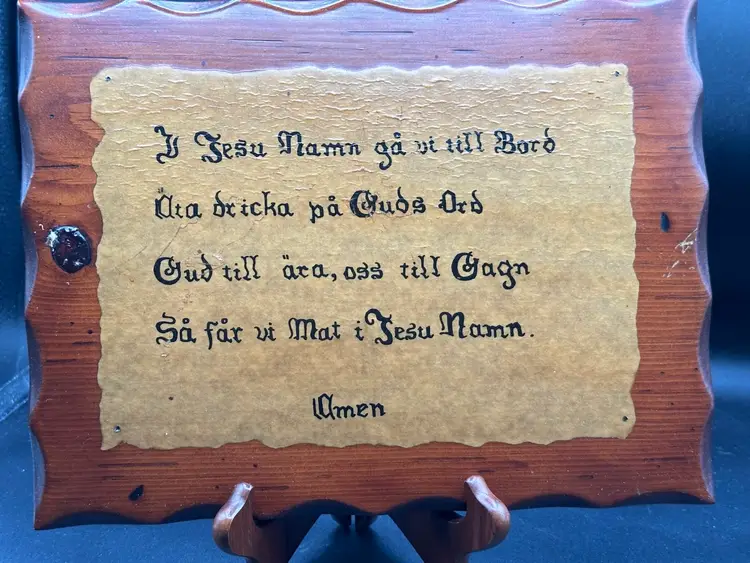 I Jesu Namn gå vi till Bord
Äta dricka på Guds Ord
Gud till ära, oss till Gagn
Så får vi Mat i Jesu Namn.
Amen